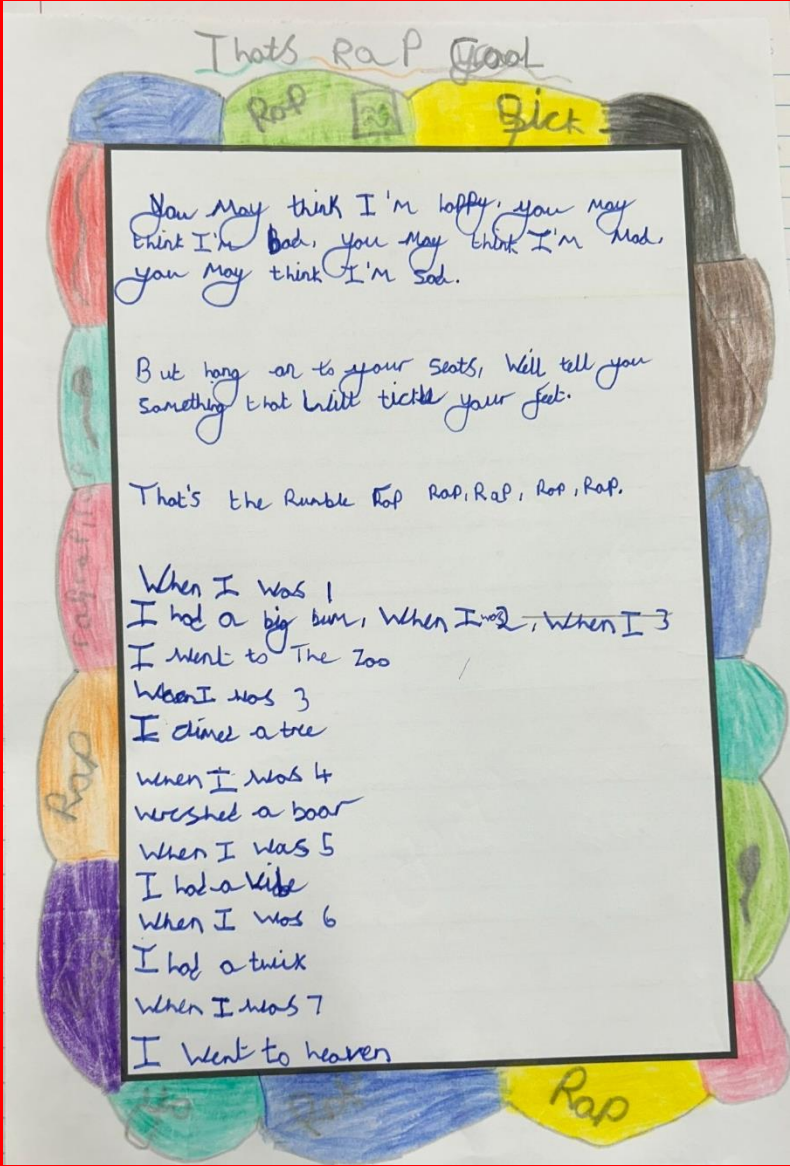 Thats RaP Cool
Rap
Sick
You May think I'm happy, you may
think I'm Bad, you May think I'm Mad,
you May think I'm Sad.
But hang on to your seats, We'll tell you
Something that Will tickle your feet.
That's the Rumble Rap Rap, Rap, Rap, Rap.
When I was 1
I had a big bum, When I was 2, When I 3
I went to The Zoo
When I was 3
I climed a tree
when I was 4
wreshed a boar
When I was 5
I had a Vibe
When I was 6
I had a twix
When I was 7
I Went to heaven
Rap
Rap